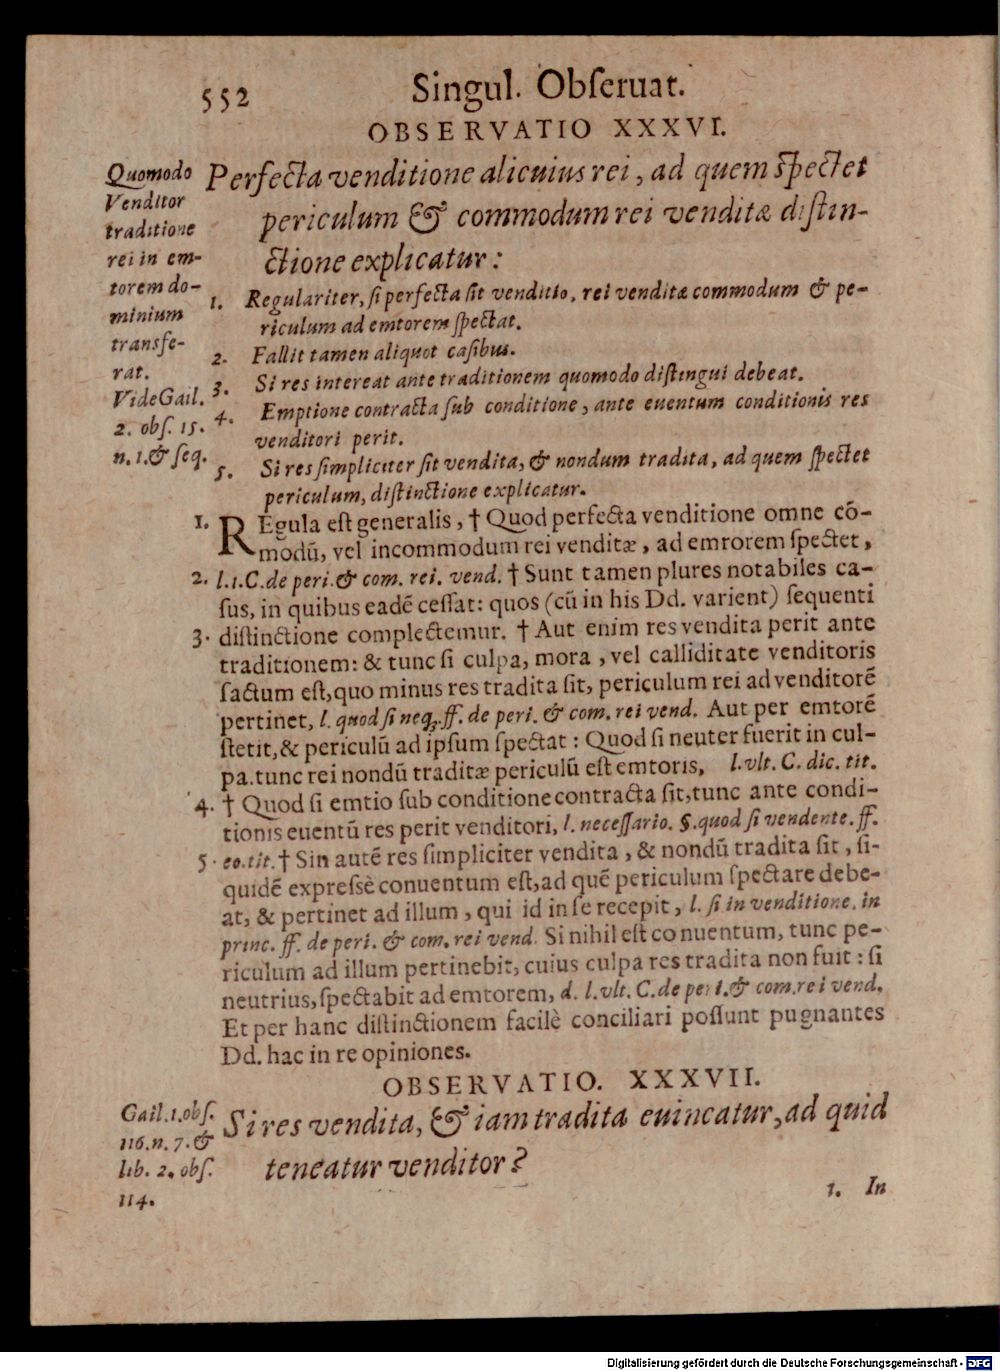 552
Singul. Obſeruat.
OBSERVATIO XXXVI.
Quomodo
Venditor
traditione
rei in em-
torem do-
minium
transfe-
rat.
Vide Gail.
2. obſ. 15.
n. 1. & ſeq.
Perfecta venditione alicuius rei, ad quem ſpectet
periculum & commodum rei venditæ diſtin-
ctione explicatur:
1. Regulariter, ſi perfecta ſit venditio, rei venditæ commodum & pe-
riculum ad emtorem ſpectat.
2. Fallit tamen aliquot caſibus.
3. Si res intereat ante traditionem quomodo diſtingui debeat.
4. Emptione contracta ſub conditione, ante euentum conditionis res
venditori perit.
5. Si res ſimpliciter ſit vendita, & nondum tradita, ad quem ſpectet
periculum, diſtinctione explicatur.
1. REgula eſt generalis, † Quod perfecta venditione omne cõ-
modũ, vel incommodum rei venditæ, ad emrorem ſpectet,
2. l. 1. C. de peri. & com. rei. vend. † Sunt tamen plures notabiles ca-
ſus, in quibus eadẽ ceſſat: quos (cũ in his Dd. varient) ſequenti
3. diſtinctione complectemur. † Aut enim res vendita perit ante
traditionem: & tunc ſi culpa, mora, vel calliditate venditoris
factum eſt, quo minus res tradita ſit, periculum rei ad venditorẽ
pertinet, l. quod ſi neq;. ff. de peri. & com. rei vend. Aut per emtorẽ
ſtetit, & periculũ ad ipſum ſpectat: Quod ſi neuter fuerit in cul-
pa. tunc rei nondũ traditæ periculũ eſt emtoris, l. vlt. C. dic. tit.
4. † Quod ſi emtio ſub conditione contracta ſit, tunc ante condi-
tionis euentũ res perit venditori, l. neceſſario. §. quod ſi vendente. ff.
5. eo. tit. † Sin autẽ res ſimpliciter vendita, & nondũ tradita ſit, ſi-
quidẽ expreſsè conuentum eſt, ad quẽ periculum ſpectare debe-
at, & pertinet ad illum, qui id in ſe recepit, l. ſi in venditione. in
princ. ff. de peri. & com. rei vend. Si nihil eſt conuentum, tunc pe-
riculum ad illum pertinebit, cuius culpa res tradita non fuit: ſi
neutrius, ſpectabit ad emtorem, d. l. vlt. C. de peri. & com. rei vend.
Et per hanc diſtinctionem facilè conciliari poſſunt pugnantes
Dd. hac in re opiniones.
OBSERVATIO. XXXVII.
Gail. 1. obſ.
116. n. 7. &
lib. 2. obſ.
114.
Si res vendita, & iam tradita euincatur, ad quid
teneatur venditor?
1. In
Digitalisierung gefördert durch die Deutsche Forschungsgemeinschaft - DFG